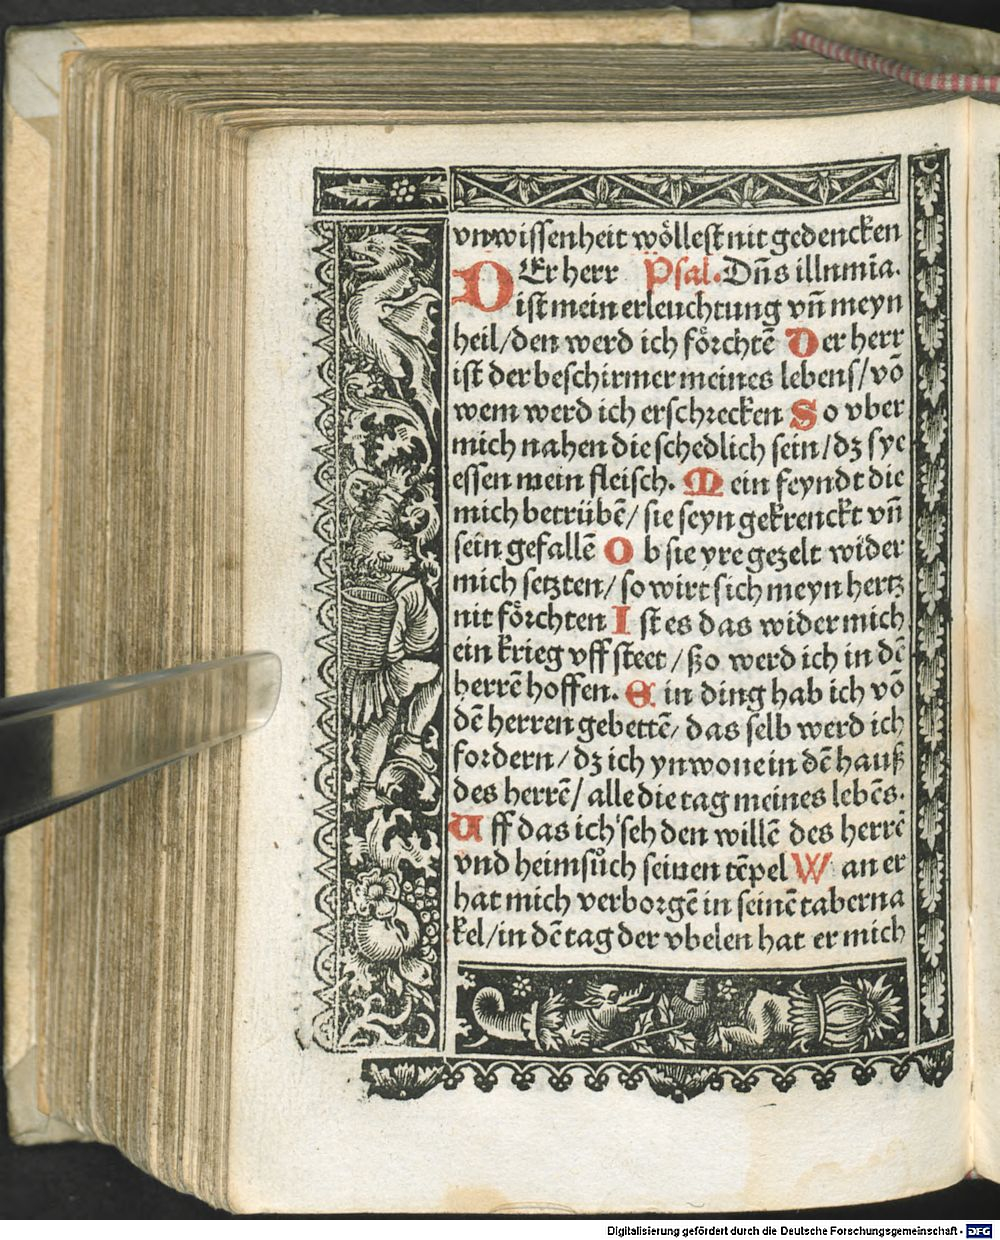 vnwissenheit wöllest nit gedencken
DEr herr Psal. Dñs illumia.
ist mein erleuchtung vñ meyn
heil/den werd ich förchtē Der herr
ist der beschirmer meines lebens/vō
wem werd ich erschrecken So vber
mich nahen die schedlich sein/dz sye
essen mein fleisch. Mein feyndt die
mich betrübē/sie seyn gekrenckt vñ
sein gefallē Ob sie yre gezelt wider
mich setzten/so wirt sich meyn hertz
nit förchten Ist es das wider mich
ein krieg vff steet/ßo werd ich in dē
herrē hoffen. Ein ding hab ich vō
dē herren gebettē/das selb werd ich
fordern/dz ich ynwone in dē hauß
des herrē/alle die tag meines lebēs.
Uff das ich seh den willē des herrē
vnd heimsůch seinen tēpel Wan er
hat mich verborgē in seinē taberna
kel/in dē tag der vbelen hat er mich
Digitalisierung gefördert durch die Deutsche Forschungsgemeinschaft - DFG